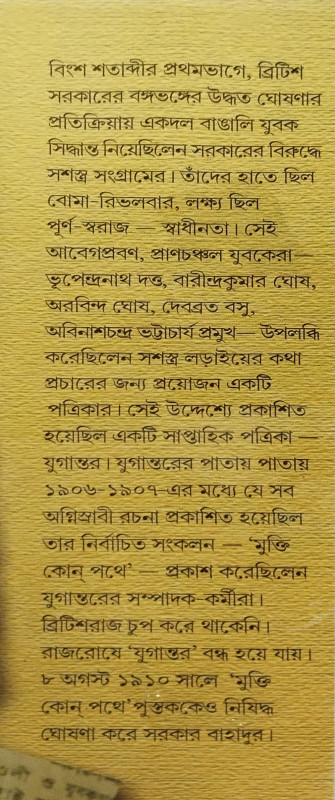 বিংশ শতাব্দীর প্রথমভাগে, ব্রিটিশ
সরকারের বঙ্গভঙ্গের উদ্ধত ঘোষণার
প্রতিক্রিয়ায় একদল বাঙালি যুবক
সিদ্ধান্ত নিয়েছিলেন সরকারের বিরুদ্ধে
সশস্ত্র সংগ্রামের। তাঁদের হাতে ছিল
বোমা-রিভলবার, লক্ষ্য ছিল
পূর্ণ-স্বরাজ — স্বাধীনতা। সেই
আবেগপ্রবণ, প্রাণচঞ্চল যুবকেরা—
ভূপেন্দ্রনাথ দত্ত, বারীন্দ্রকুমার ঘোষ,
অরবিন্দ ঘোষ, দেবব্রত বসু,
অবিনাশচন্দ্র ভট্টাচার্য প্রমুখ— উপলব্ধি
করেছিলেন সশস্ত্র লড়াইয়ের কথা
প্রচারের জন্য প্রয়োজন একটি
পত্রিকার। সেই উদ্দেশ্যে প্রকাশিত
হয়েছিল একটি সাপ্তাহিক পত্রিকা —
যুগান্তর। যুগান্তরের পাতায় পাতায়
১৯০৬-১৯০৭-এর মধ্যে যে সব
অগ্নিস্রাবী রচনা প্রকাশিত হয়েছিল
তার নির্বাচিত সংকলন — 'মুক্তি
কোন্ পথে' — প্রকাশ করেছিলেন
যুগান্তরের সম্পাদক-কর্মীরা।
ব্রিটিশরাজ চুপ করে থাকেনি।
রাজরোষে 'যুগান্তর' বন্ধ হয়ে যায়।
৮ অগস্ট ১৯১০ সালে 'মুক্তি
কোন্ পথে' পুস্তককেও নিষিদ্ধ
ঘোষণা করে সরকার বাহাদুর।